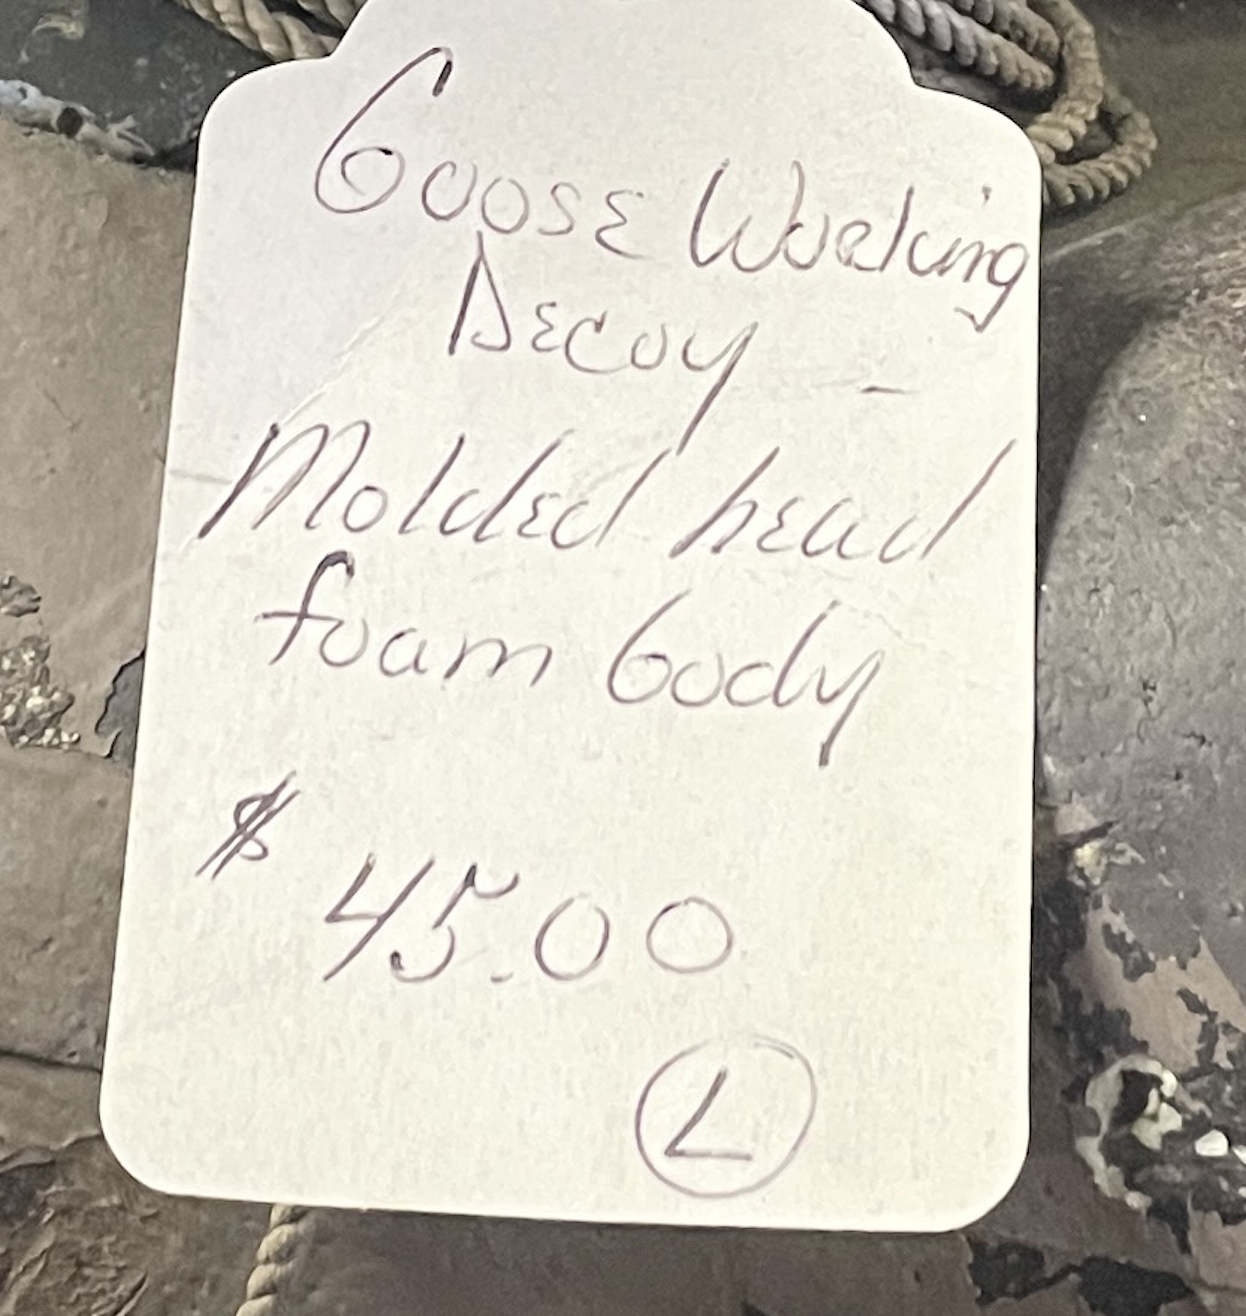 Goose Working
Decoy -
Molded head
foam body
$ 45.00
L